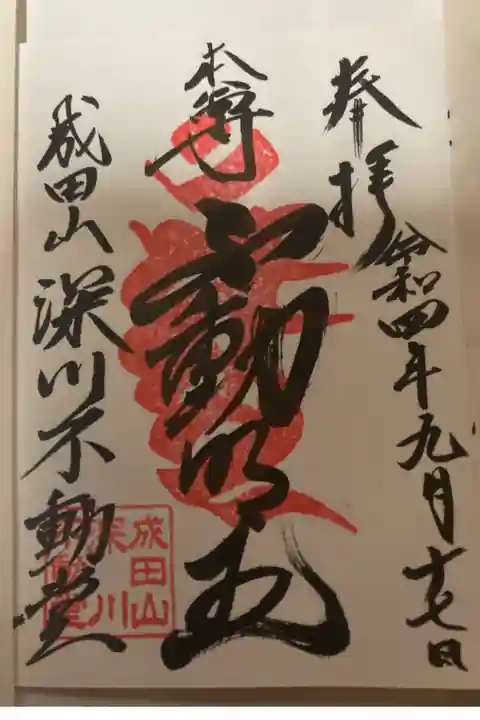 奉拝
令和四年九月十七日
本尊
不動明王
成田山深川不動堂
成田山
深川
不動堂